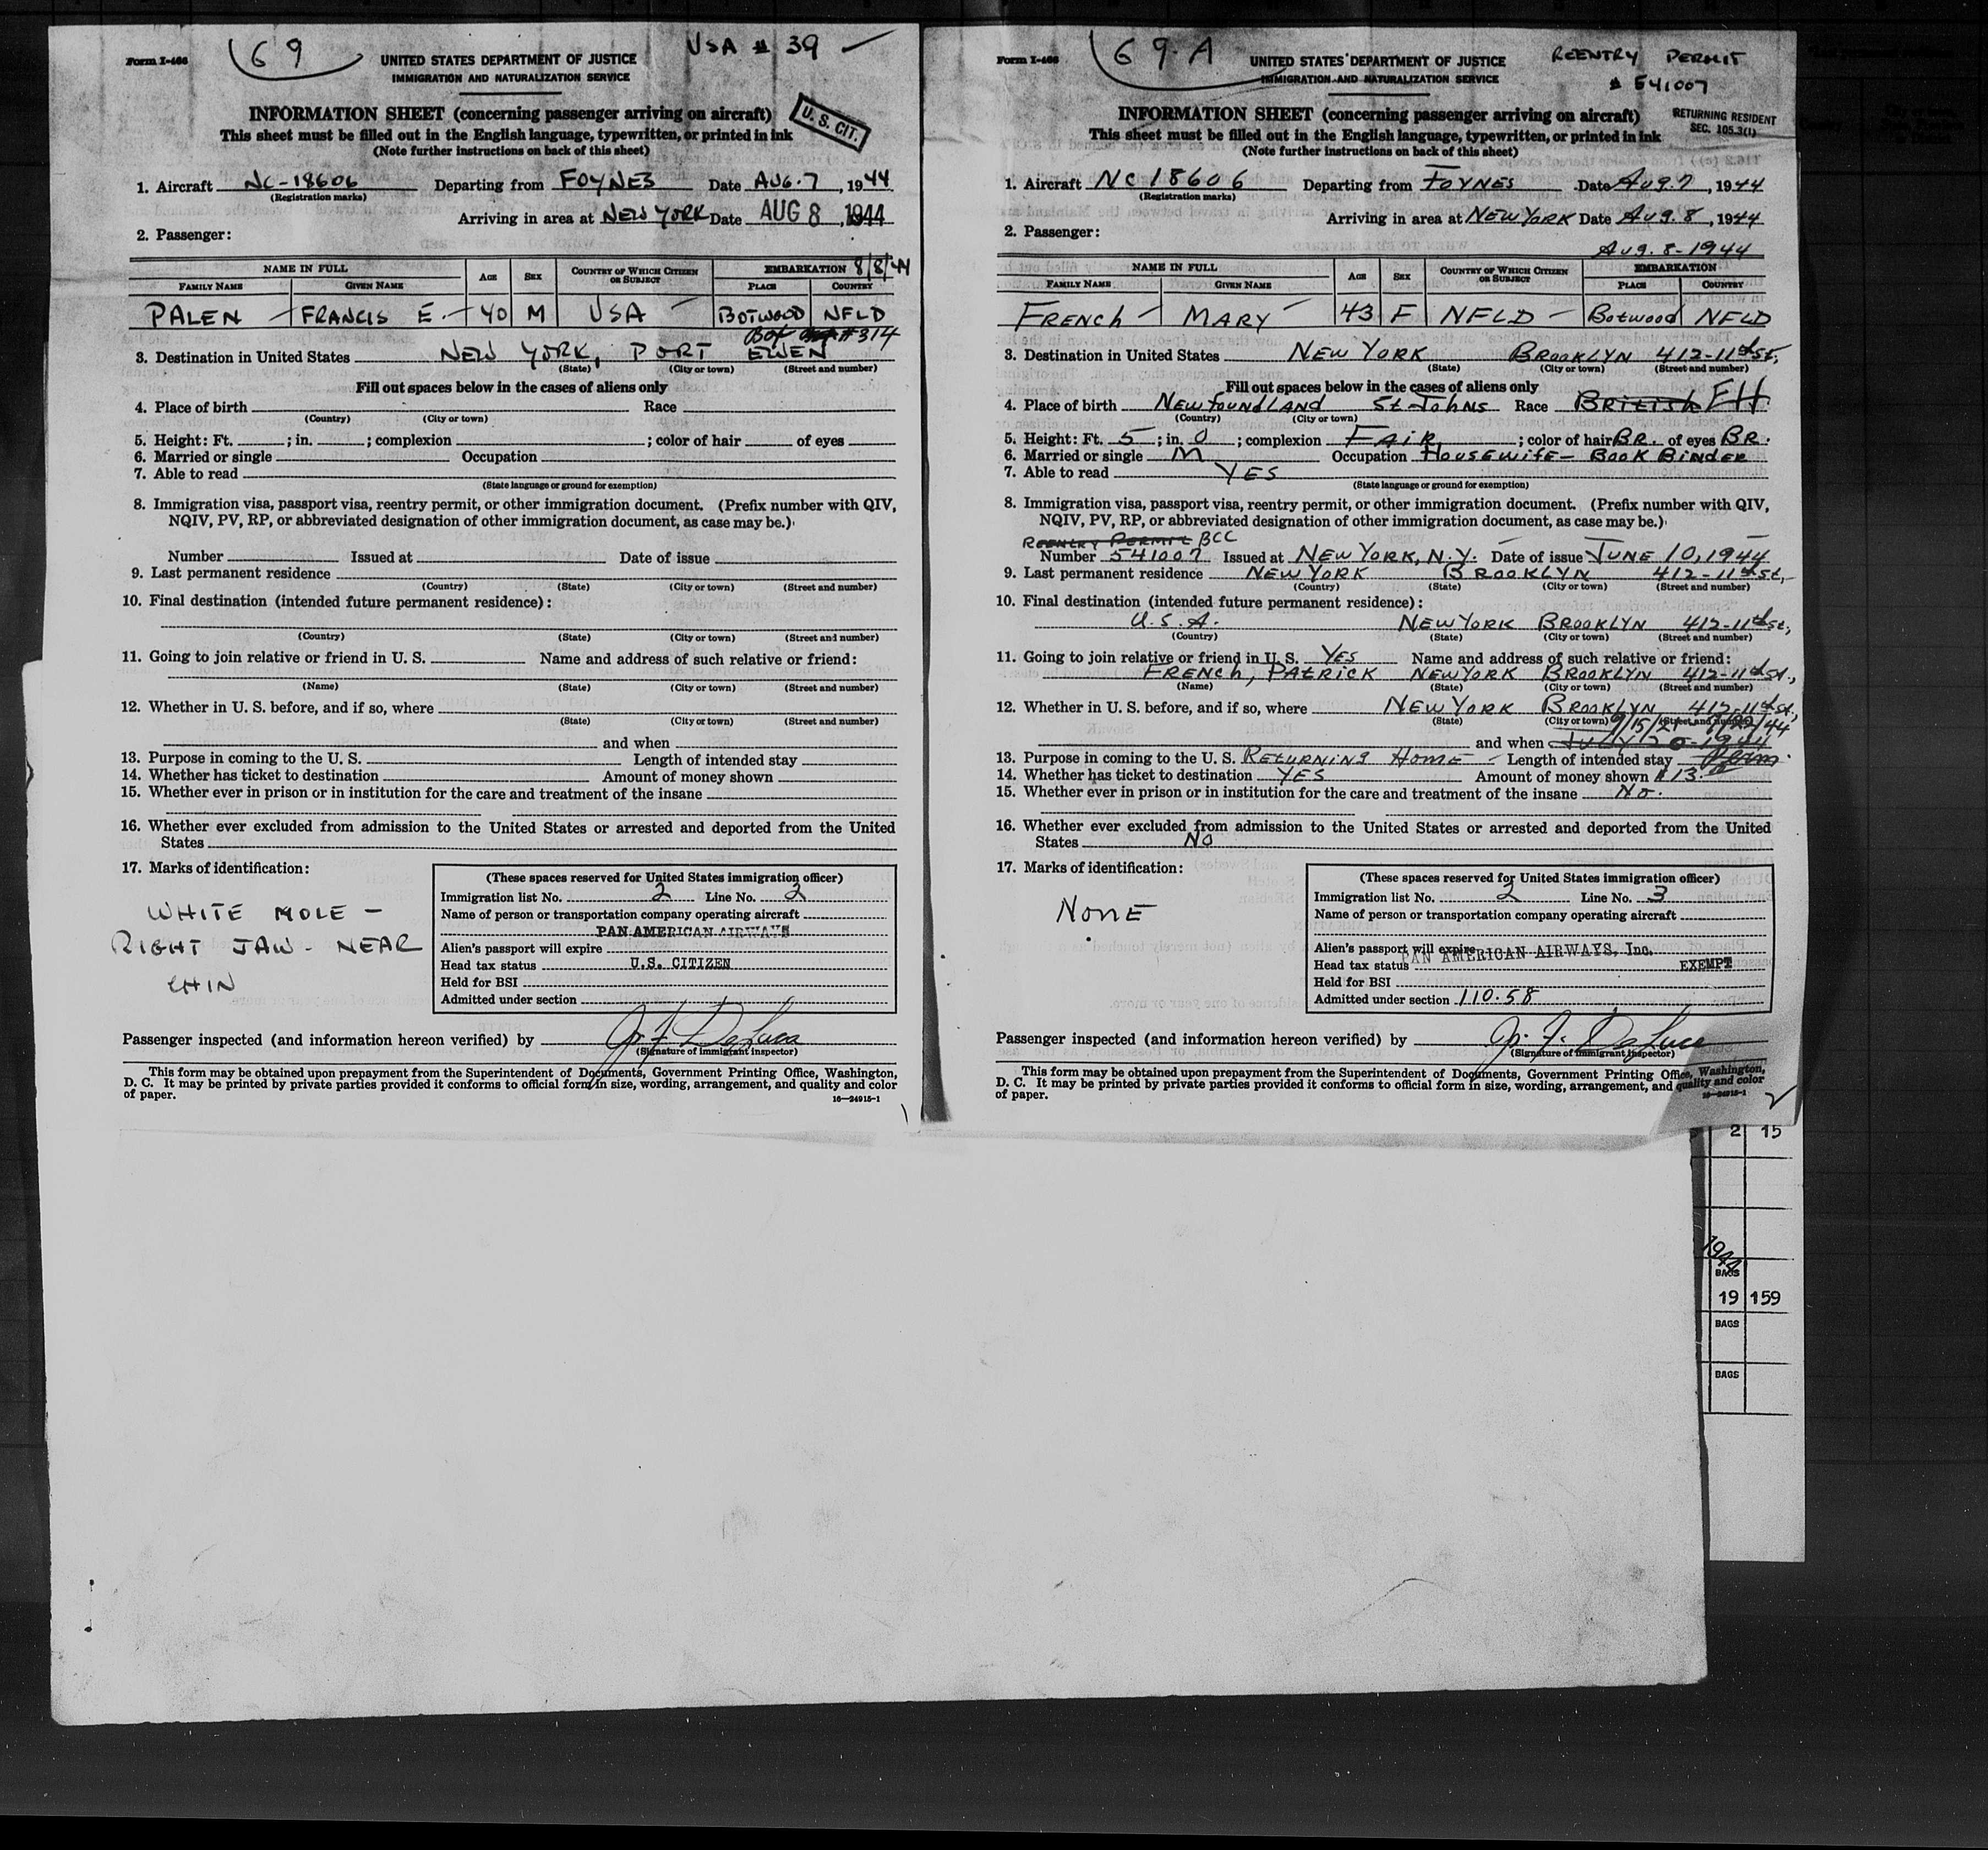 Form I-466
69
UNITED STATES DEPARTMENT OF JUSTICE
USA # 39
IMMIGRATION AND NATURALIZATION SERVICE
INFORMATION SHEET (concerning passenger arriving on aircraft)
U. S. CIT.
This sheet must be filled out in the English language, typewritten, or printed in ink
(Note further instructions on back of this sheet)
1. Aircraft NC-18606 Departing from FOYNES Date AUG. 7, 1944
(Registration marks)
Arriving in area at NEW YORK Date AUG 8, 1944
2. Passenger:
8/8/44
NAME IN FULL AGE SEX COUNTRY OF WHICH CITIZEN OR SUBJECT EMBARKATION
FAMILY NAME GIVEN NAME PLACE COUNTRY
PALEN - FRANCIS E. - 40 M USA - BOTWOOD NFLD
Box #314
3. Destination in United States NEW YORK, PORT EWEN
(State) (City or town) (Street and number)
Fill out spaces below in the cases of aliens only
4. Place of birth Race
(Country) (City or town)
5. Height: Ft. ; in. ; complexion ; color of hair of eyes
6. Married or single Occupation
7. Able to read
(State language or ground for exemption)
8. Immigration visa, passport visa, reentry permit, or other immigration document. (Prefix number with QIV,
NQIV, PV, RP, or abbreviated designation of other immigration document, as case may be.)
Number Issued at Date of issue
9. Last permanent residence
(Country) (State) (City or town) (Street and number)
10. Final destination (intended future permanent residence):
(Country) (State) (City or town) (Street and number)
11. Going to join relative or friend in U. S. Name and address of such relative or friend:
(Name) (State) (City or town) (Street and number)
12. Whether in U. S. before, and if so, where
(State) (City or town) (Street and number)
and when
13. Purpose in coming to the U. S. Length of intended stay
14. Whether has ticket to destination Amount of money shown
15. Whether ever in prison or in institution for the care and treatment of the insane
16. Whether ever excluded from admission to the United States or arrested and deported from the United
States
17. Marks of identification:
WHITE MOLE -
RIGHT JAW - NEAR
CHIN
(These spaces reserved for United States immigration officer)
Immigration list No. 2 Line No. 2
Name of person or transportation company operating aircraft
PAN AMERICAN AIRWAYS
Alien's passport will expire
Head tax status U.S. CITIZEN
Held for BSI
Admitted under section
Passenger inspected (and information hereon verified) by J. F. DeLuca
(Signature of immigrant inspector)
This form may be obtained upon prepayment from the Superintendent of Documents, Government Printing Office, Washington,
D. C. It may be printed by private parties provided it conforms to official form in size, wording, arrangement, and quality and color
of paper.
16—24915-1
Form I-466
69-A
UNITED STATES DEPARTMENT OF JUSTICE
REENTRY PERMIT
IMMIGRATION AND NATURALIZATION SERVICE
# 541007
INFORMATION SHEET (concerning passenger arriving on aircraft)
RETURNING RESIDENT
SEC. 105.3(1)
This sheet must be filled out in the English language, typewritten, or printed in ink
(Note further instructions on back of this sheet)
1. Aircraft NC 18606 Departing from FOYNES Date Aug. 7, 1944
(Registration marks)
Arriving in area at NEW YORK Date Aug. 8, 1944
2. Passenger:
Aug. 8-1944
NAME IN FULL AGE SEX COUNTRY OF WHICH CITIZEN OR SUBJECT EMBARKATION
FAMILY NAME GIVEN NAME PLACE COUNTRY
FRENCH - MARY - 43 F NFLD - Botwood NFLD
3. Destination in United States NEW YORK BROOKLYN 412-11th St,
(State) (City or town) (Street and number)
Fill out spaces below in the cases of aliens only
4. Place of birth NEWFOUNDLAND St-Johns Race BRITISH
(Country) (City or town)
5. Height: Ft. 5; in. 0; complexion FAIR; color of hair BR. of eyes BR.
6. Married or single M Occupation HOUSEWIFE - BOOK BINDER
7. Able to read YES
(State language or ground for exemption)
8. Immigration visa, passport visa, reentry permit, or other immigration document. (Prefix number with QIV,
NQIV, PV, RP, or abbreviated designation of other immigration document, as case may be.)
REENTRY PERMIT BCC
Number 541007 Issued at NEW YORK, N.Y. Date of issue JUNE 10, 1944
9. Last permanent residence NEW YORK BROOKLYN 412-11th St,
(Country) (State) (City or town) (Street and number)
10. Final destination (intended future permanent residence):
U.S.A. NEW YORK BROOKLYN 412-11th St,
(Country) (State) (City or town) (Street and number)
11. Going to join relative or friend in U. S. YES Name and address of such relative or friend:
FRENCH, PATRICK NEW YORK BROOKLYN 412-11th St.,
(Name) (State) (City or town) (Street and number)
12. Whether in U. S. before, and if so, where NEW YORK BROOKLYN 412-11th St,
(State) (City or town) (Street and number)
and when
13. Purpose in coming to the U. S. RETURNING HOME - Length of intended stay Perm.
14. Whether has ticket to destination YES Amount of money shown # 13.
15. Whether ever in prison or in institution for the care and treatment of the insane No.
16. Whether ever excluded from admission to the United States or arrested and deported from the United
States No
17. Marks of identification:
NONE
(These spaces reserved for United States immigration officer)
Immigration list No. 2 Line No. 3
Name of person or transportation company operating aircraft
Alien's passport will expire
PAN AMERICAN AIRWAYS, Inc.
Head tax status EXEMPT
Held for BSI
Admitted under section 110.58
Passenger inspected (and information hereon verified) by J. F. DeLuca
(Signature of immigrant inspector)
This form may be obtained upon prepayment from the Superintendent of Documents, Government Printing Office, Washington,
D. C. It may be printed by private parties provided it conforms to official form in size, wording, arrangement, and quality and color
of paper.
16—24915-1
2
2 15
1944
BAGS
19 159
BAGS
BAGS